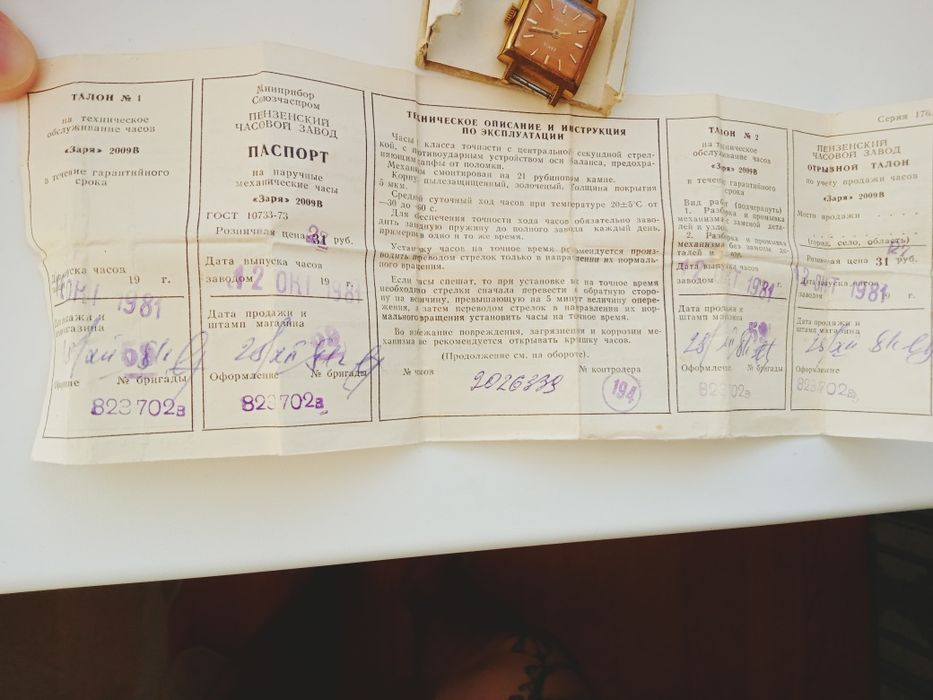 ТАЛОН № 1
на техническое
обслуживание часов
«Заря» 2009В
в течение гарантийного
срока
выпуска часов
19 г.
ОКТ 1981
Продажа и
магазина
№ бригады
823702в
Минприбор
Союзчаспром
ПЕНЗЕНСКИЙ
ЧАСОВОЙ ЗАВОД
ПАСПОРТ
на наручные
механические часы
«Заря» 2009В
ГОСТ 10733-73
Розничная цена 31 руб.
Дата выпуска часов
заводом 12 ОКТ 1981
Дата продажи и
штамп магазина
Оформление № бригады
823702в
ТЕХНИЧЕСКОЕ ОПИСАНИЕ И ИНСТРУКЦИЯ
ПО ЭКСПЛУАТАЦИИ
Часы класса точности с центральной секундной стрел-
кой, с противоударным устройством оси баланса, предохра-
няющим цапфы от поломки.
Механизм смонтирован на 21 рубиновом камне.
Корпус пылезащищенный, золоченый, толщина покрытия
5 мкм.
Средний суточный ход часов при температуре 20±5°С от
—30 до +60 с.
Для обеспечения точности хода часов обязательно заво-
дить заводную пружину до полного завода каждый день,
примерно в одно и то же время.
Установку часов на точное время рекомендуется произ-
водить переводом стрелок только в направлении их нормаль-
ного вращения.
Если часы спешат, то при установке их на точное время
необходимо стрелки сначала перевести в обратную сторо-
ну на величину, превышающую на 5 минут величину опере-
жения, а затем переводом стрелок в направлении их нор-
мального вращения установить часы на точное время.
Во избежание повреждения, загрязнения и коррозии ме-
ханизма не рекомендуется открывать крышку часов.
(Продолжение см. на обороте).
№ часов 2026339 № контролера
194
ТАЛОН № 2
на техническое
обслуживание часов
«Заря» 2009В
в течение гарантийного
срока
Вид работ (подчеркнуть)
1. Разборка и промывка
механизма с заменой дета-
лей и узлов
2. Разборка и промывка
механизма без замены де-
талей и узлов.
Дата выпуска часов
заводом 12 ОКТ 1981
Дата продажи и
штамп магазина
Оформление № бригады
823702в
Серия 176
ПЕНЗЕНСКИЙ
ЧАСОВОЙ ЗАВОД
ОТРЫВНОЙ ТАЛОН
по учету продажи часов
«Заря» 2009В
Место продажи
(город, село, область)
Розничная цена 31 руб.
Дата выпуска часов
заводом 12 ОКТ 1981 г.
Дата продажи и
штамп магазина
Оформление
823702в